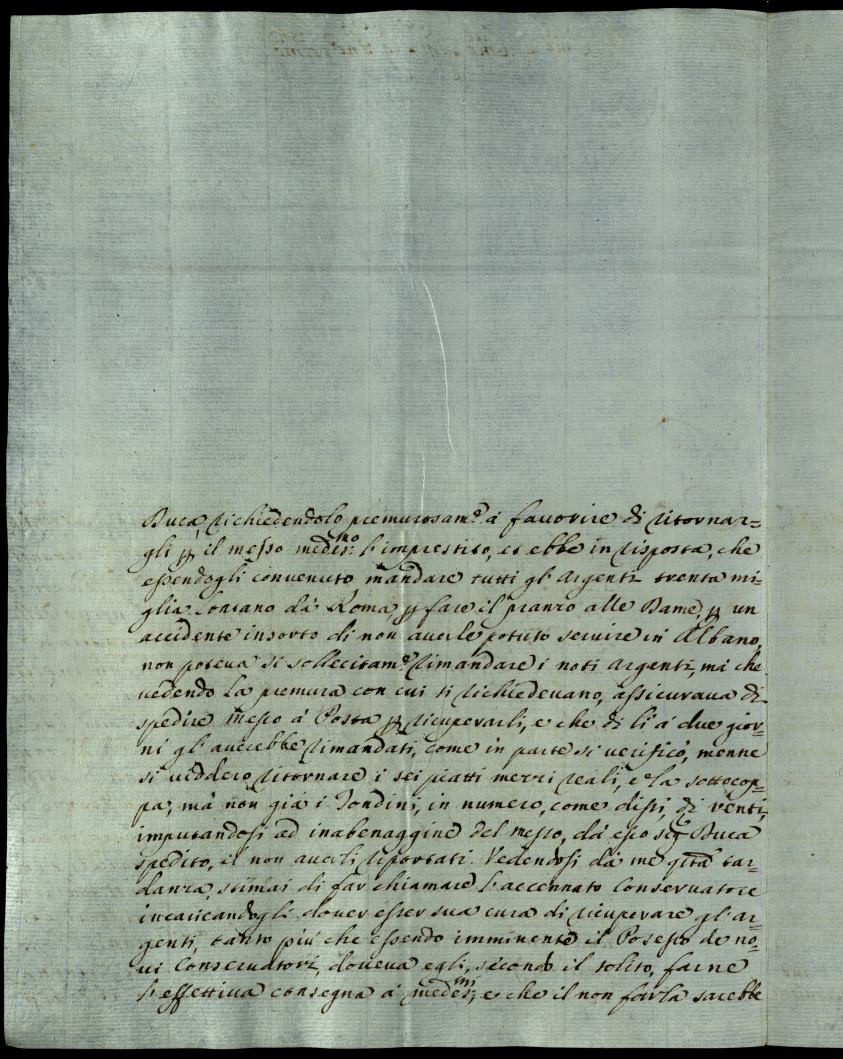 Duca, richiedendolo premurosam.e à favorire di ritornar=
gli p il messo medes.mo l'imprestito, et ebbe in risposta, che
essendogli convenuto mandare tutti gl'Argenti trenta mi=
glia lontano dà Roma, p fare il pranzo alle Dame, p un
accidente insorto di non averle potuto servire in Albano,
non poteva si sollecitam.e rimandare i noti Argenti, mà che
vedendo la premura con cui si richiedevano, assicurava di
spedire messo à Posta p ricuperarli, e che di lì à due gior=
ni gl'averebbe rimandati, come in parte si verificò, mentre
si viddero ritornare i sei piatti mezzi reali, e la sottocop=
pa, mà non già i Tondini, in numero, come dissi, di venti,
imputandosi ad inabenaggine del messo, dà esso Sig.e Duca
spedito, il non averli riportati. Vedendosi dà me q.ta tar=
danza, stimai di far chiamare l'accennato Conservatore
incaricandogli dover esser sua cura di ricuperare gl'Ar=
genti, tanto più che essendo imminente il Possesso de no=
vi Conservatori, doveva egli, secondo il solito, farne
l'effettiva consegna à medes.mi, e che il non farla sarebbe